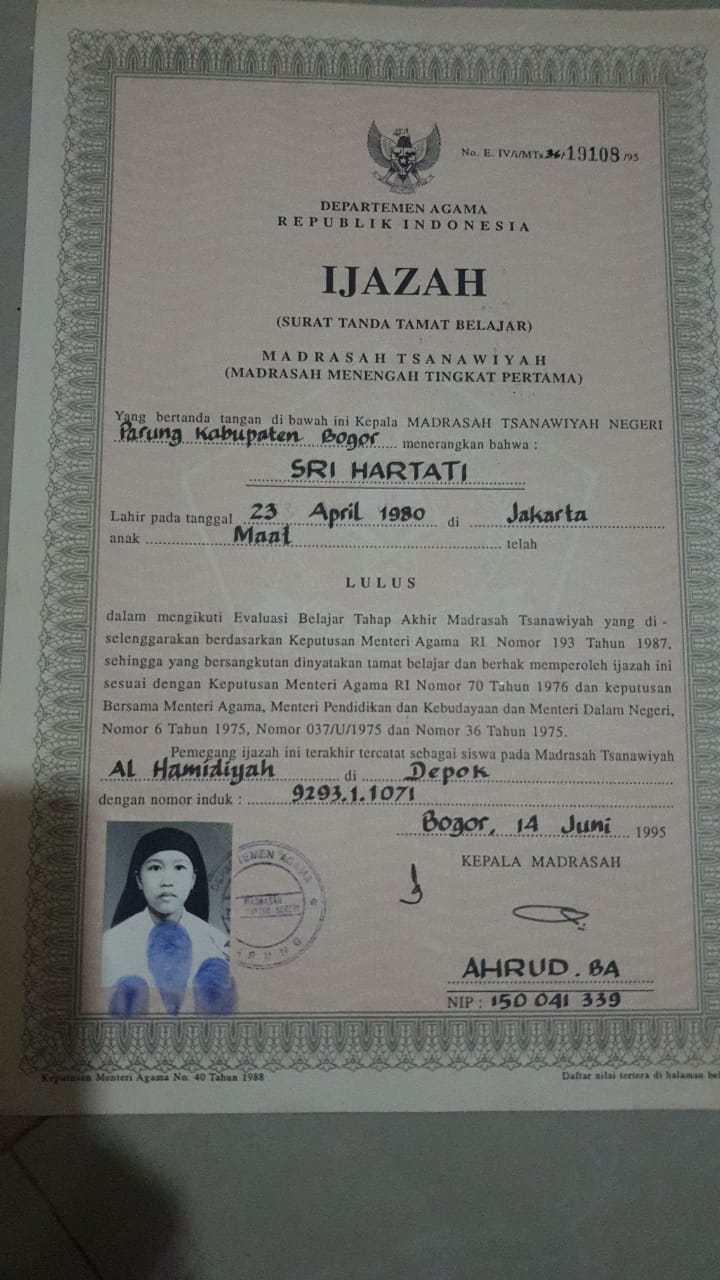 No. E. IV/i/MTs 36/19108/95
DEPARTEMEN AGAMA
REPUBLIK INDONESIA
IJAZAH
(SURAT TANDA TAMAT BELAJAR)
MADRASAH TSANAWIYAH
(MADRASAH MENENGAH TINGKAT PERTAMA)
Yang bertanda tangan di bawah ini Kepala MADRASAH TSANAWIYAH NEGERI
Parung Kabupaten Bogor menerangkan bahwa :
SRI HARTATI
Lahir pada tanggal 23 April 1980 di Jakarta
anak Maat telah
LULUS
dalam mengikuti Evaluasi Belajar Tahap Akhir Madrasah Tsanawiyah yang di -
selenggarakan berdasarkan Keputusan Menteri Agama RI Nomor 193 Tahun 1987,
sehingga yang bersangkutan dinyatakan tamat belajar dan berhak memperoleh ijazah ini
sesuai dengan Keputusan Menteri Agama RI Nomor 70 Tahun 1976 dan keputusan
Bersama Menteri Agama, Menteri Pendidikan dan Kebudayaan dan Menteri Dalam Negeri,
Nomor 6 Tahun 1975, Nomor 037/U/1975 dan Nomor 36 Tahun 1975.
Pemegang ijazah ini terakhir tercatat sebagai siswa pada Madrasah Tsanawiyah
Al Hamidiyah di Depok
dengan nomor induk : 9293.1.1071
Bogor, 14 Juni 1995
KEPALA MADRASAH
DEPARTEMEN AGAMA
MADRASAH
NEGERI
AHRUD. BA
NIP : 150 041 339
Keputusan Menteri Agama No. 40 Tahun 1988
Daftar nilai tertera di halaman